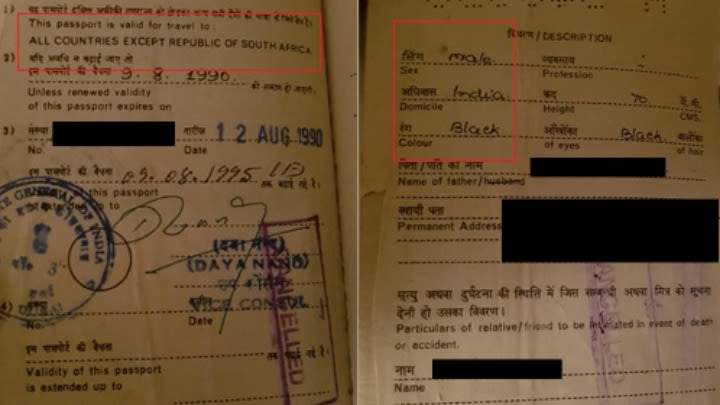 This passport is valid for travel to :
ALL COUNTRIES EXCEPT REPUBLIC OF SOUTH AFRICA
2) यदि अवधि न बढ़ाई जाए तो
इस पासपोर्ट की वैधता 9.8.1990
Unless renewed validity
of this passport expires on
3) संख्या तारीख 12 AUG 1990
No. Date
इस पासपोर्ट की वैधता 09.08.1995 तक बढ़ाई गई है।
of this passport
extended up to
(DAYA NAND)
VICE CONSUL
CANCELLED
4) संख्या
No. Date
इस पासपोर्ट की वैधता तक बढ़ाई गई है।
Validity of this passport
is extended up to
विवरण / DESCRIPTION
लिंग Male व्यवसाय
Sex Profession
अधिवास India कद 70 सें. मी.
Domicile Height CMS.
रंग Black आँखों का Black बालों का
Colour of eyes of hair
पिता / पति का नाम
Name of father / husband
स्थायी पता
Permanent Address
मृत्यु अथवा दुर्घटना की स्थिति में जिस सम्बन्धी अथवा मित्र को सूचना
देनी हो उसका विवरण।
Particulars of relative/friend to be intimated in event of death
or accident.
नाम
Name